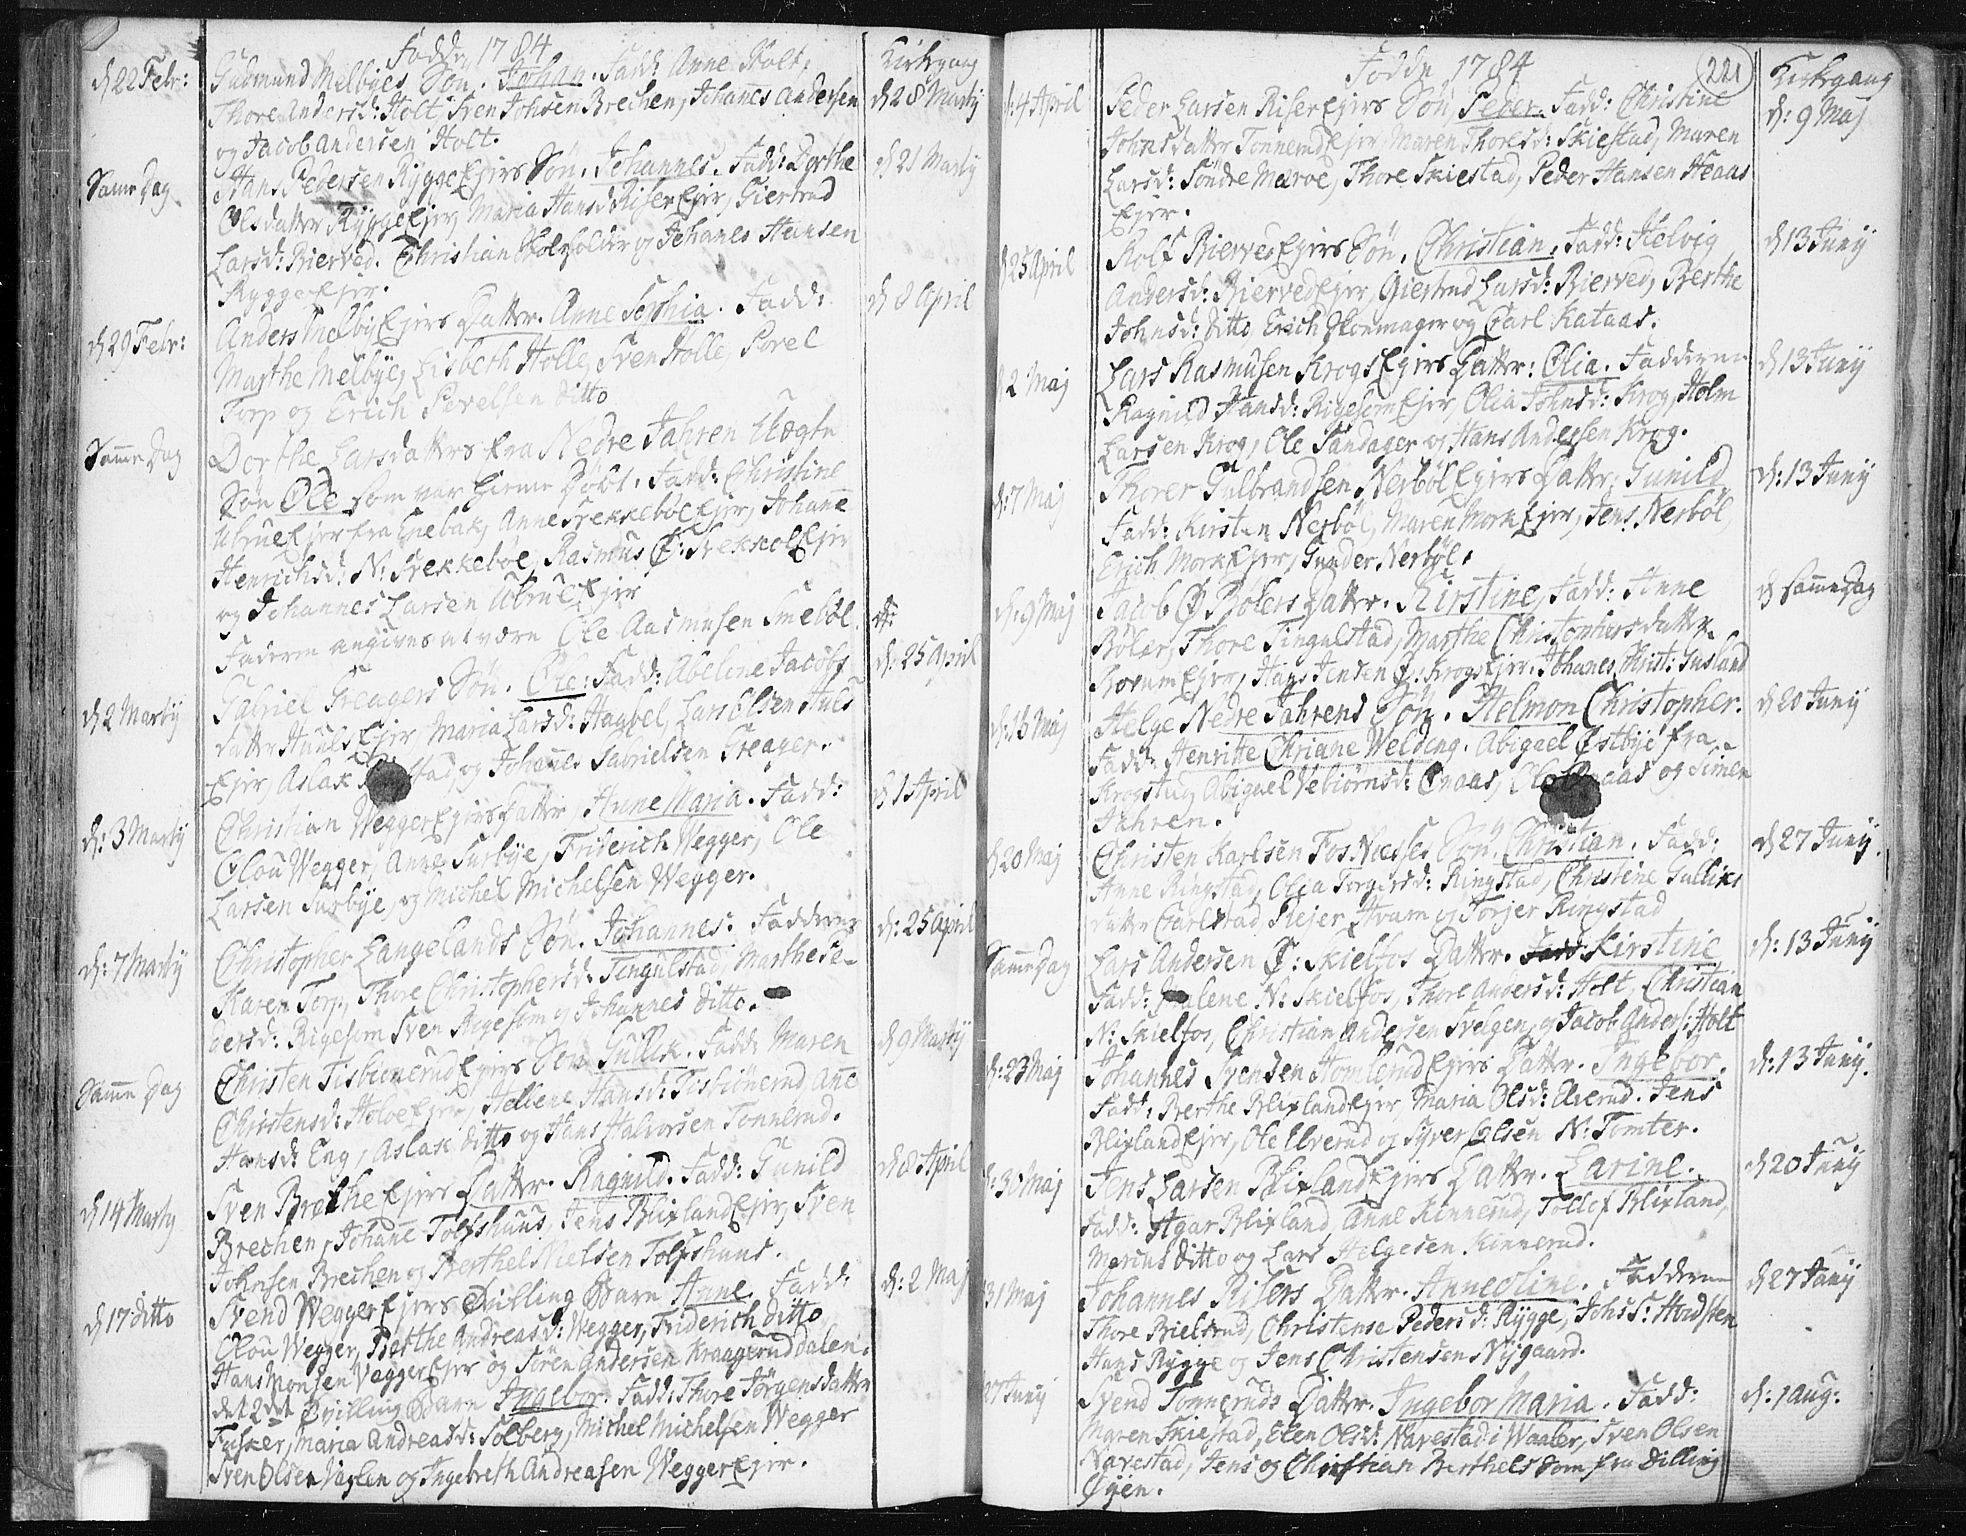 Fødde 1784
Kirkgang
d 22 Febr:
Gudmund Melbyes Søn. Johan. Fadd: Anne Holt,
Thore Andersd: Holt, Sven Johsen Brechen, Johanes Andersen
d 28 Marty
og Jacob Andersen Holt.
Samme Dag
Hans Pedersen Rygge Ejers Søn. Johannes. Fadd: Dorthe
d 21 Marty
Olsdatter Rygge Ejer, Maria Hansd Riser Ejer, Giertrud
Larsd: Bierved. Christian og Johanes Hansen
Rygge Ejer.
d 29 Febr:
Anders Melby Ejers Datter. Anne Sophia. Fadd:
d 8 April
Marthe Melbye, Lisbeth Holle, Sven Holle, Povel
Torp og Erich Povelsen ditto
Samme Dag
Dorthe Larsdatters fra Nedre Jahren Uægte
Søn Ole som var hieme Døbt. Fadd: Christine
Ubrue Ejer fra Enebak, Anne Svekkebøl Ejer, Johanne
Henrichsd: N: Svekkebøl, Rasmus Ø: Svekkebøl Ejer
og Johannes Larsen Ubrue Ejer
Faderen angives at være Ole Aasmusen Smebøl.
d 2 Marty
Gabriel Greagers Søn. Ole: Fadd: Abelene Jacobs
d: 25 April
datter Huuls Ejer, Maria Larsd: Haabel, Lars Olsen Huls
Ejer, Aslak og Johanes Gabrielsen Greager.
d: 3 Marty
Christian Wegger Ejers Datter, Anne Maria. Fadd:
d 1 April
Olou Wegger, Anne Surbye, Friderich Wegger, Ole
Larsen Surbye, og Michel Michelsen Wegger.
d: 7 Marty
Christopher Langelands Søn. Johannes. Fadderne
d: 25 April
Karen Torp, Thore Christophersd: Tingulstad, Marthe Pe-
dersd: Rigesom Sven Rigesom og Johannes ditto.
Samme Dag
Christen Tisbiønerud Ejers Søn Gullik. Fadd: Maren
d 9 Marty
Christensd: Holoe Ejer, Hellene Hansd: Tisbiønerud Ane
Hansd: Eng, Aslak ditto og Hans Halvorsen Tonnerud.
d 14 Marty
Sven Brethe Ejers Datter. Ragnild. Fadd: Gunild
d 8 April
Brechen, Johane Tolfshuus, Jens Blixland Ejer, Sven
Johnsen Brechen og Berthel Nielsen Tolfshuus.
d 17 ditto
Svend Wegger Ejers Tvilling Barn Anne. Fadd:
d: 2 Maj
Olou Wegger, Berthe Andreasd: Wegger, Friderith ditto
Hans Monsen Vagger Ejer og Søren Andersen Kraagerud dalen.
det 2det Tvilling Barn Ingebor. Fadd: Thore Jørgensdatter
Fusker, Maria Andreasd: Solberg, Michel Michelsen Wegger
Sven Olsen Vaslen og Ingebreth Andreasen Wegger Ejer.
Fødde 1784
221
Kirkgaang
d: 4 April
Peder Larsen Riser Ejers Søn, Peder. Fadd: Christine
d: 9 Maj
Johnsdatter Tonnerud Ejer, Maren Thoresd: Skiestad, Maren
Larsd: Søndre Meroe, Thore Skiestad, Peder Hansen Heaas
Ejer.
d 25 April
Rolf Bierved Ejers Søn. Christian. Fadd: Helvig
d 13 Juny
Andersd: Bierved Ejer, Giertrud Larsd: Bierved, Berthe
Johnsd: ditto Erich Skomager og Carl Kataas.
d 2 Maj
Lars Rasmusen Krogs Ejers Datter: Olia. Fadderne
d 13 Juny
Ragnild Hansd: Rigesom Ejer, Olia Johnsd: Krog, Holm
Larsen Krog, Ole Sandager og Hans Andersen Krog.
d: 7 Maj
Thorer Gulbrandsen Nerbøl Ejers Datter: Gunild
d: 13 Juny
Fadd: Kirsten Nerbøl, Maren Mork Ejer, Jens Nerbøl
Erich Mork Ejer, Gunder Nerbøl.
d: 9 Maj
Jacob Ø Bølers Datter. Kirstine, Fadd: Anne
d samme Dag
Bøler, Thore Tingulstad, Marthe Christophersdatter
Borum Ejer, Hans Jensen Ø: Krogs Ejer. Johanes Krist: Gusland
d: 15 Maj
Helge Nedre Jahrens Søn. Helmon Christopher.
d 20 Juny
Fadd: Henritte Chriane Welding. Abigael Østbye fra
Krogstug, Abigael Vebiørnsd: Oraas, Ole Oraas og Simen
Jahren.
d 20 Maj
Christen Karlsen Fos Næsses Søn. Christian. Fadd:
d 27 Juny.
Anne Ringstad, Olia Torgersd: Ringstad, Christine Gulliks
datter Carlstad, Rejer Hvam og Torjer Ringstad
Samme Dag
Lars Andersen Ø: Skielfos Datter. Kirstine
d: 13 Juny
Fadd: Malene N: Skielfos, Thore Andersd: Holt, Christian
N: Skielfos, Christian Andersen Svelgen, og Jacob Anders: Holt
d: 23 Maj
Johannes Svensen Homlerud Ejers Datter. Ingebor.
d: 13 Juny.
Fadd: Berthe Blixland Ejer, Maria Olsd: Elverud. Jens
Blixland Ejer, Ole Elverud og Syver Olsen N: Tomter.
d: 30 Maj
Jens Larsen Blixland Ejers Datter. Larine.
d 20 Juny
Fadd: Agar Blixland, Anne Kinnerud, Tollef Blixland,
Marcus ditto og Lars Helgesen Kinnerud.
31 Maj
Johannes Risers Datter. Annestine. Fadderne
d 27 Juny
Thore Bielsrud, Christense Pedersd: Rygge, Johs S: Houdsten
Hans Rygge og Jens Christensens Nygaard.
27 Juny
Svend Tonneruds Datter. Ingebor Maria. Fadd:
d: 1 Aug:
Maren Skiestad, Elen Olsd: Narestad i Waaler, Sven Olsen
Narestad, Jens og Christian Berthels som fra Dilling
Øyen.